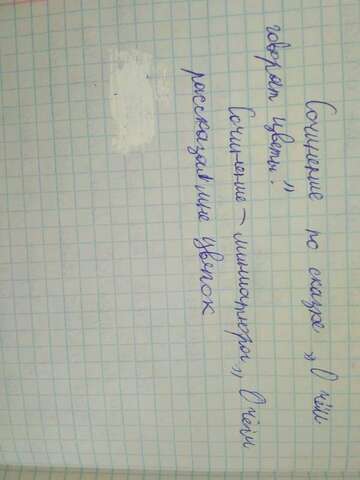 Сочинение по сказке „О чём
говорят цветы."
Сочинение - миниатюра „О чём
рассказал мне цветок